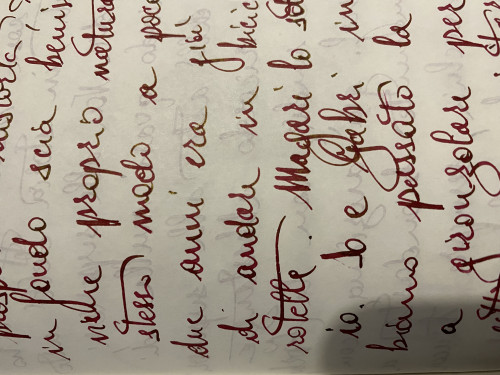 in fondo scia benis
niche proprio natura
stesso modo a poc
due anni era più
di andare in bici
rotelle. Magari lo so
io. b e Gabri in
biamo passato la
a gironzolare per